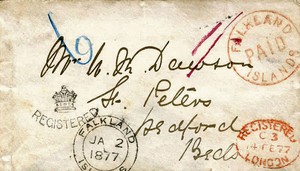 19
FALKLAND
PAID
ISLANDS
Mr
Dawson
St. Peters
REGISTERED
Bedford
FALKLAND
JA 2
1877
Beds
REGISTERED
G 3
14 FE 77
LONDON